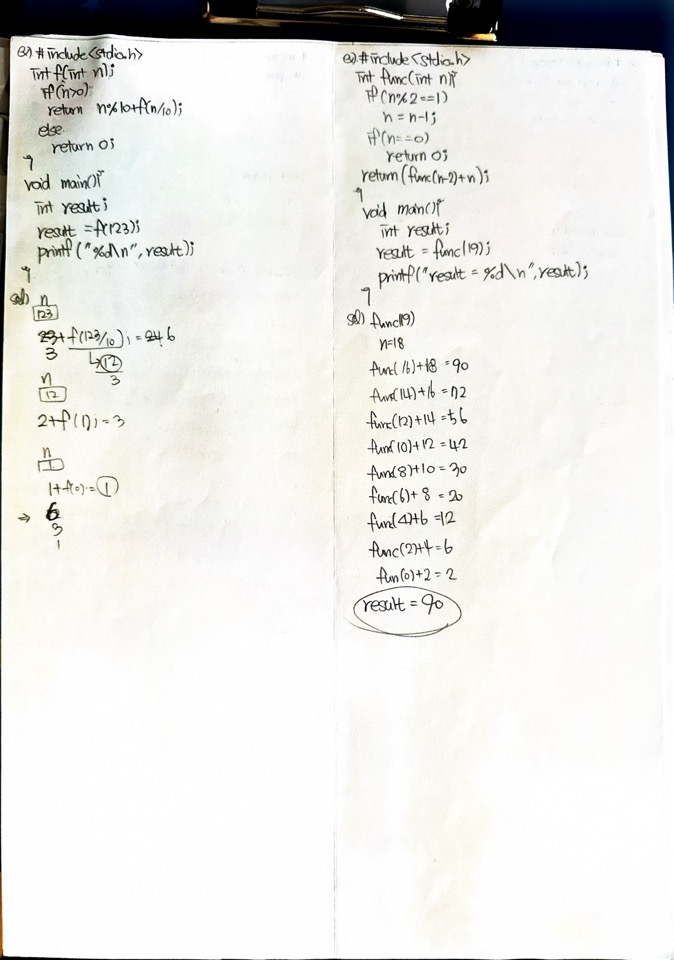 ex) #include<stdio.h>
int f(int n);
if(n>0)
return n%10+f(n/10);
else
return 0;
}
void main(){
int result;
result =f(123);
printf("%d\n", result);
}
sol) n
123
f(123/10); = 6
3 12
3
n
12
2+f(1); = 3
n
1
1+f(0) = 1
⇒ 6
3
1
ex) #include<stdio.h>
int func(int n){
if(n%2==1)
n = n-1;
if(n==0)
return 0;
return(func(n-2)+n);
}
void main(){
int result;
result = func(19);
printf("result = %d\n", result);
}
sol) func(19)
n=18
func(16)+18 = 90
func(14)+16 = 72
func(12)+14 = 56
func(10)+12 = 42
func(8)+10 = 30
func(6)+8 = 20
func(4)+6 = 12
func(2)+4 = 6
fun(0)+2 = 2
result = 90